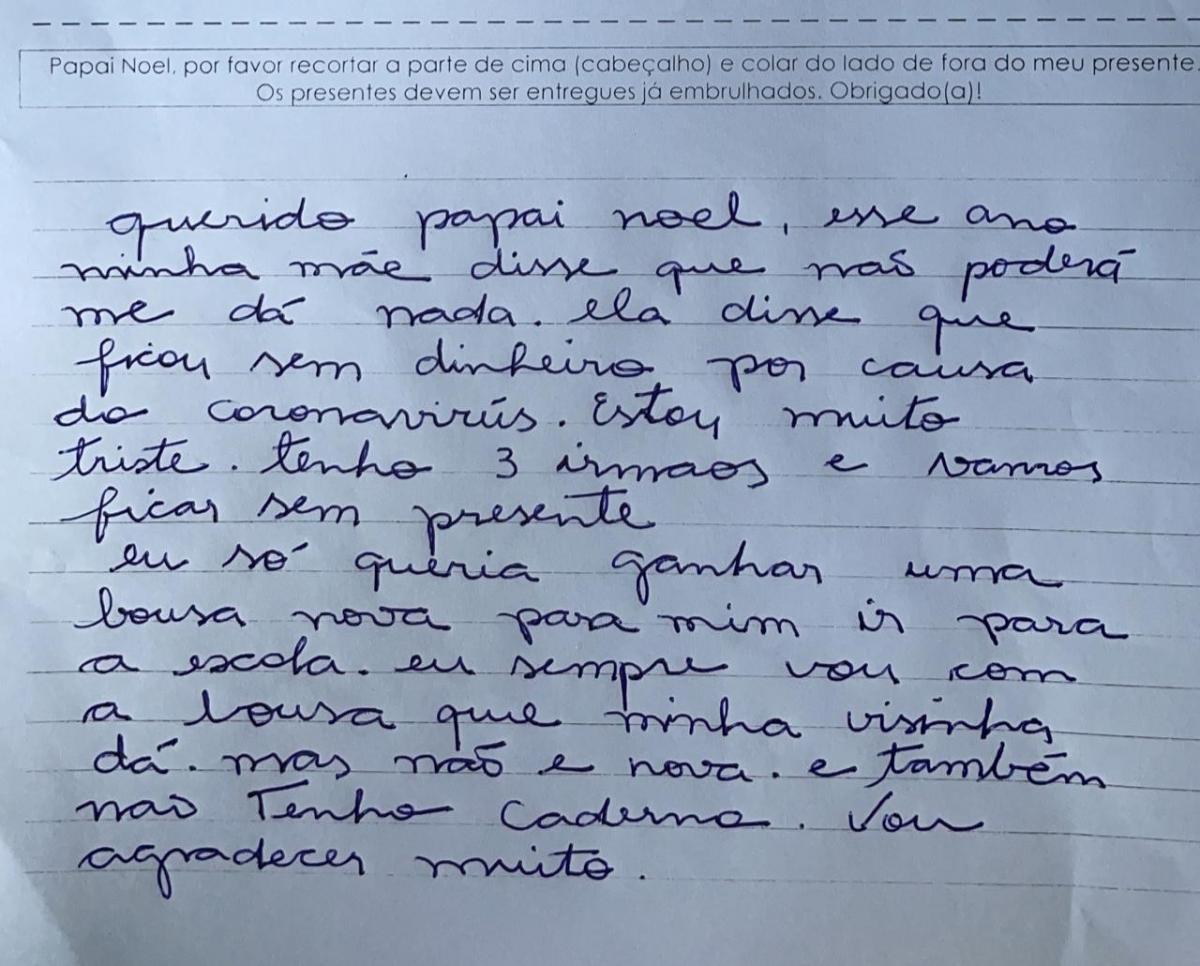 Papai Noel, por favor recortar a parte de cima (cabeçalho) e colar do lado de fora do meu presente.
Os presentes devem ser entregues já embrulhados. Obrigado(a)!
querido papai noel, esse ano
minha mãe disse que naõ poderá
me dá nada. ela disse que
ficou sem dinheiro por causa
do coronavirús. Estou muito
triste. tenho 3 irmaos e vamos
ficar sem presente
eu só queria ganhar uma
bousa nova para mim ir para
a escola. eu sempre vou com
a bousa que minha visinha
dá. mas naõ e nova. e também
nao Tenho Caderno. Vou
agradecer muito.